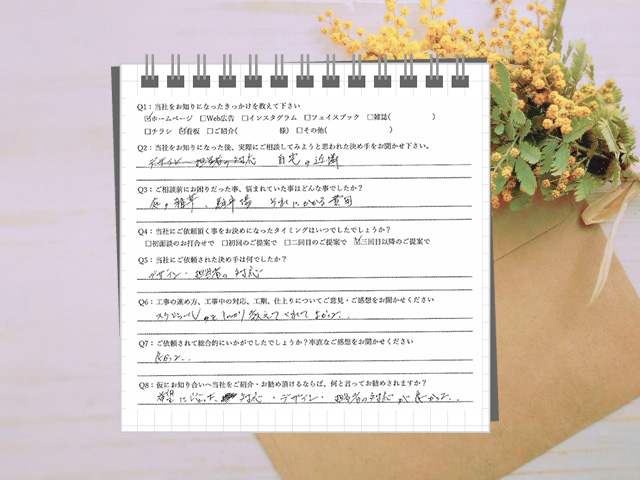 Q1：当社をお知りになったきっかけを教えて下さい
☑ホームページ □Web広告 □インスタグラム □フェイスブック □雑誌( )
□チラシ ☑看板 □ご紹介( 様) □その他( )
Q2：当社をお知りになった後、実際にご相談してみようと思われた決め手をお聞かせ下さい。
デザイン 担当者の対応 自宅の近隣
Q3：ご相談前にお困りだった事、悩まれていた事はどんな事でしたか？
庭の雑草、駐車場 それにかかる費用
Q4：当社にご依頼頂く事をお決めになったタイミングはいつでしたでしょうか？
□初面談のお打合せで □初回のご提案で □二回目のご提案で ☑三回目以降のご提案で
Q5：当社にご依頼された決め手は何でしたか？
デザイン・担当者の対応
Q6：工事の進め方、工事中の対応、工期、仕上りについてご意見・ご感想をお聞かせください
スケジュール しっかり教えてくれてよかった。
Q7：ご依頼されて総合的にいかがでしたでしょうか？率直なご感想をお聞かせください
良かった。
Q8：仮にお知り合いへ当社をご紹介・お勧め頂けるならば、何と言ってお勧めされますか？
希望に沿った 対応・デザイン・担当者の対応が良かった。